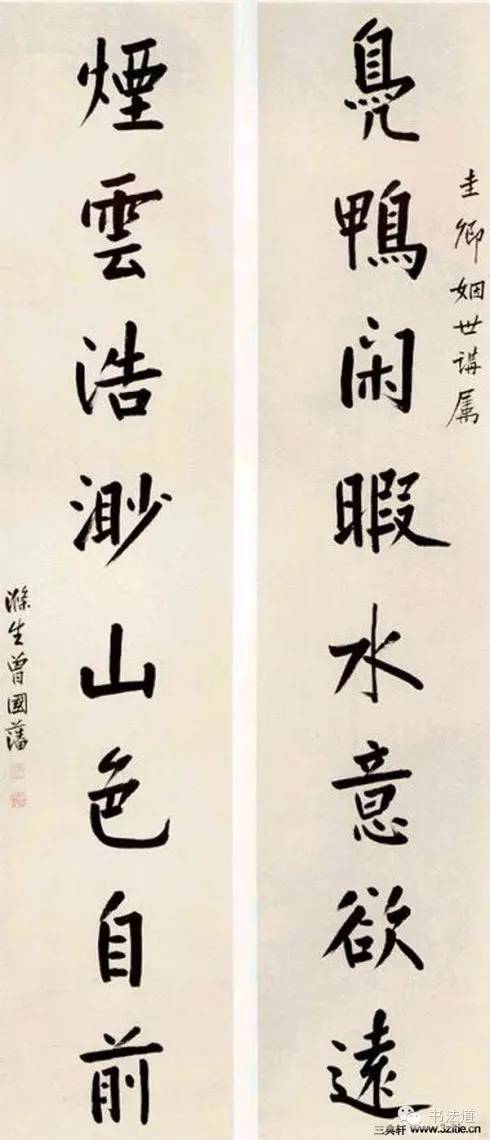 圭卿姻世講属
鳧鴨闲暇水意欲遠
煙雲浩渺山色自前
滌生曾國藩
书法道
www.3zitie.cn